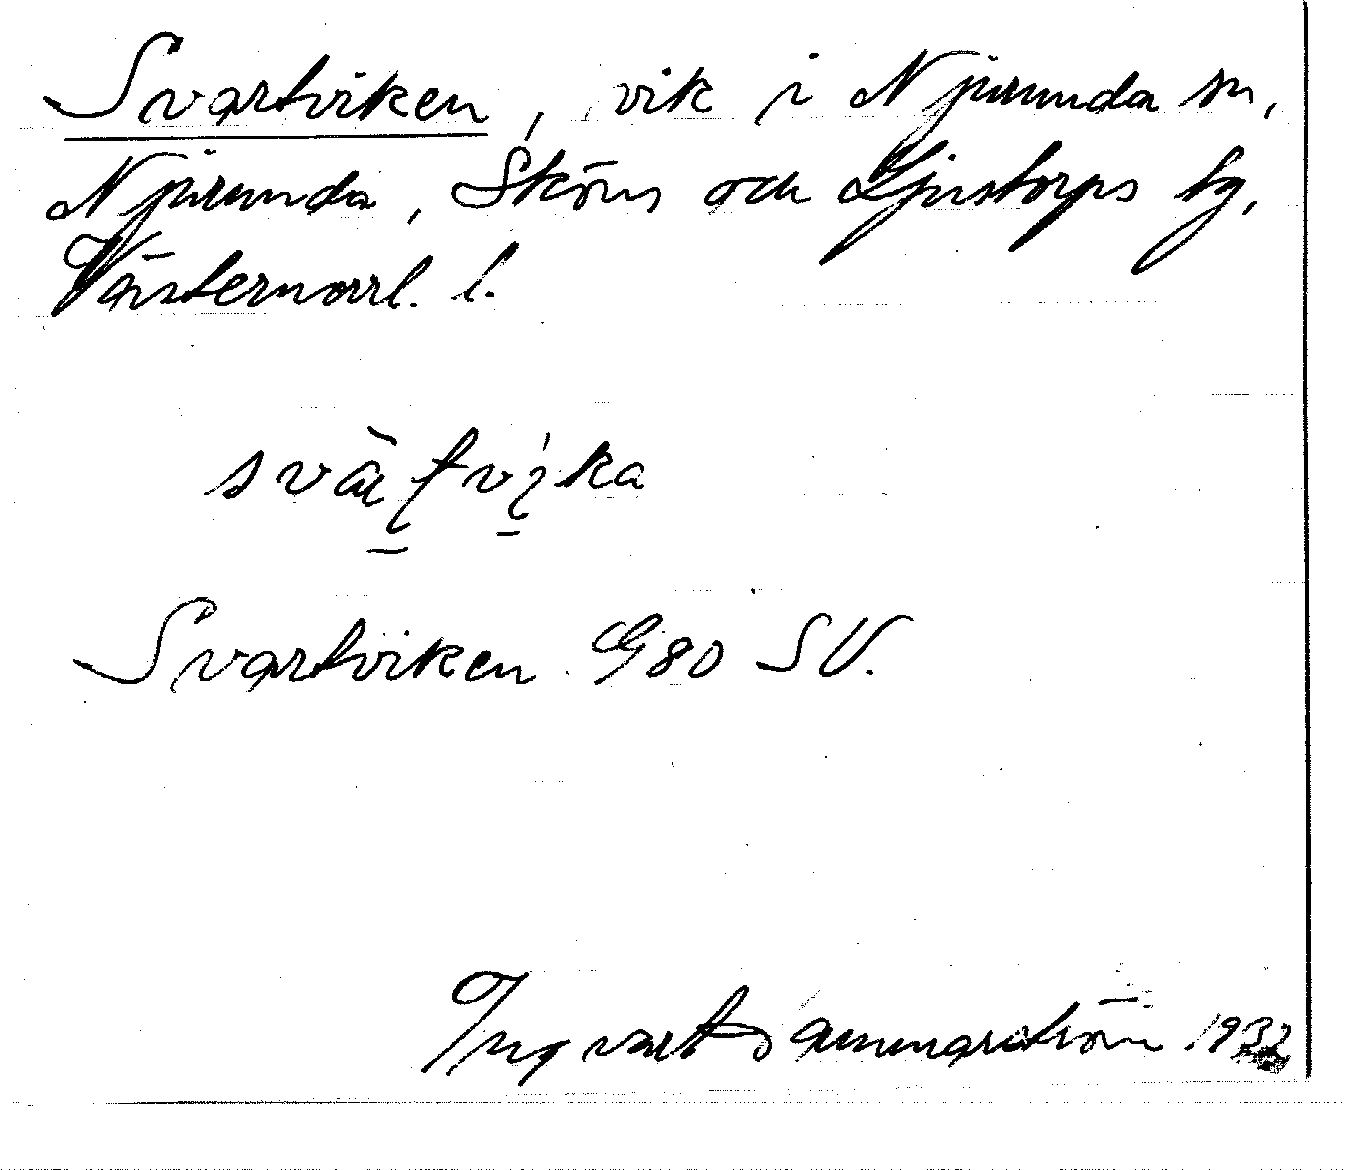 Svartviken, vik i Njurunda sn,
Njurunda, Sköns och Ljustorps tg,
Västernorrl. l.
Svartviken G80 SV.
Ingvart Hammarström 1932